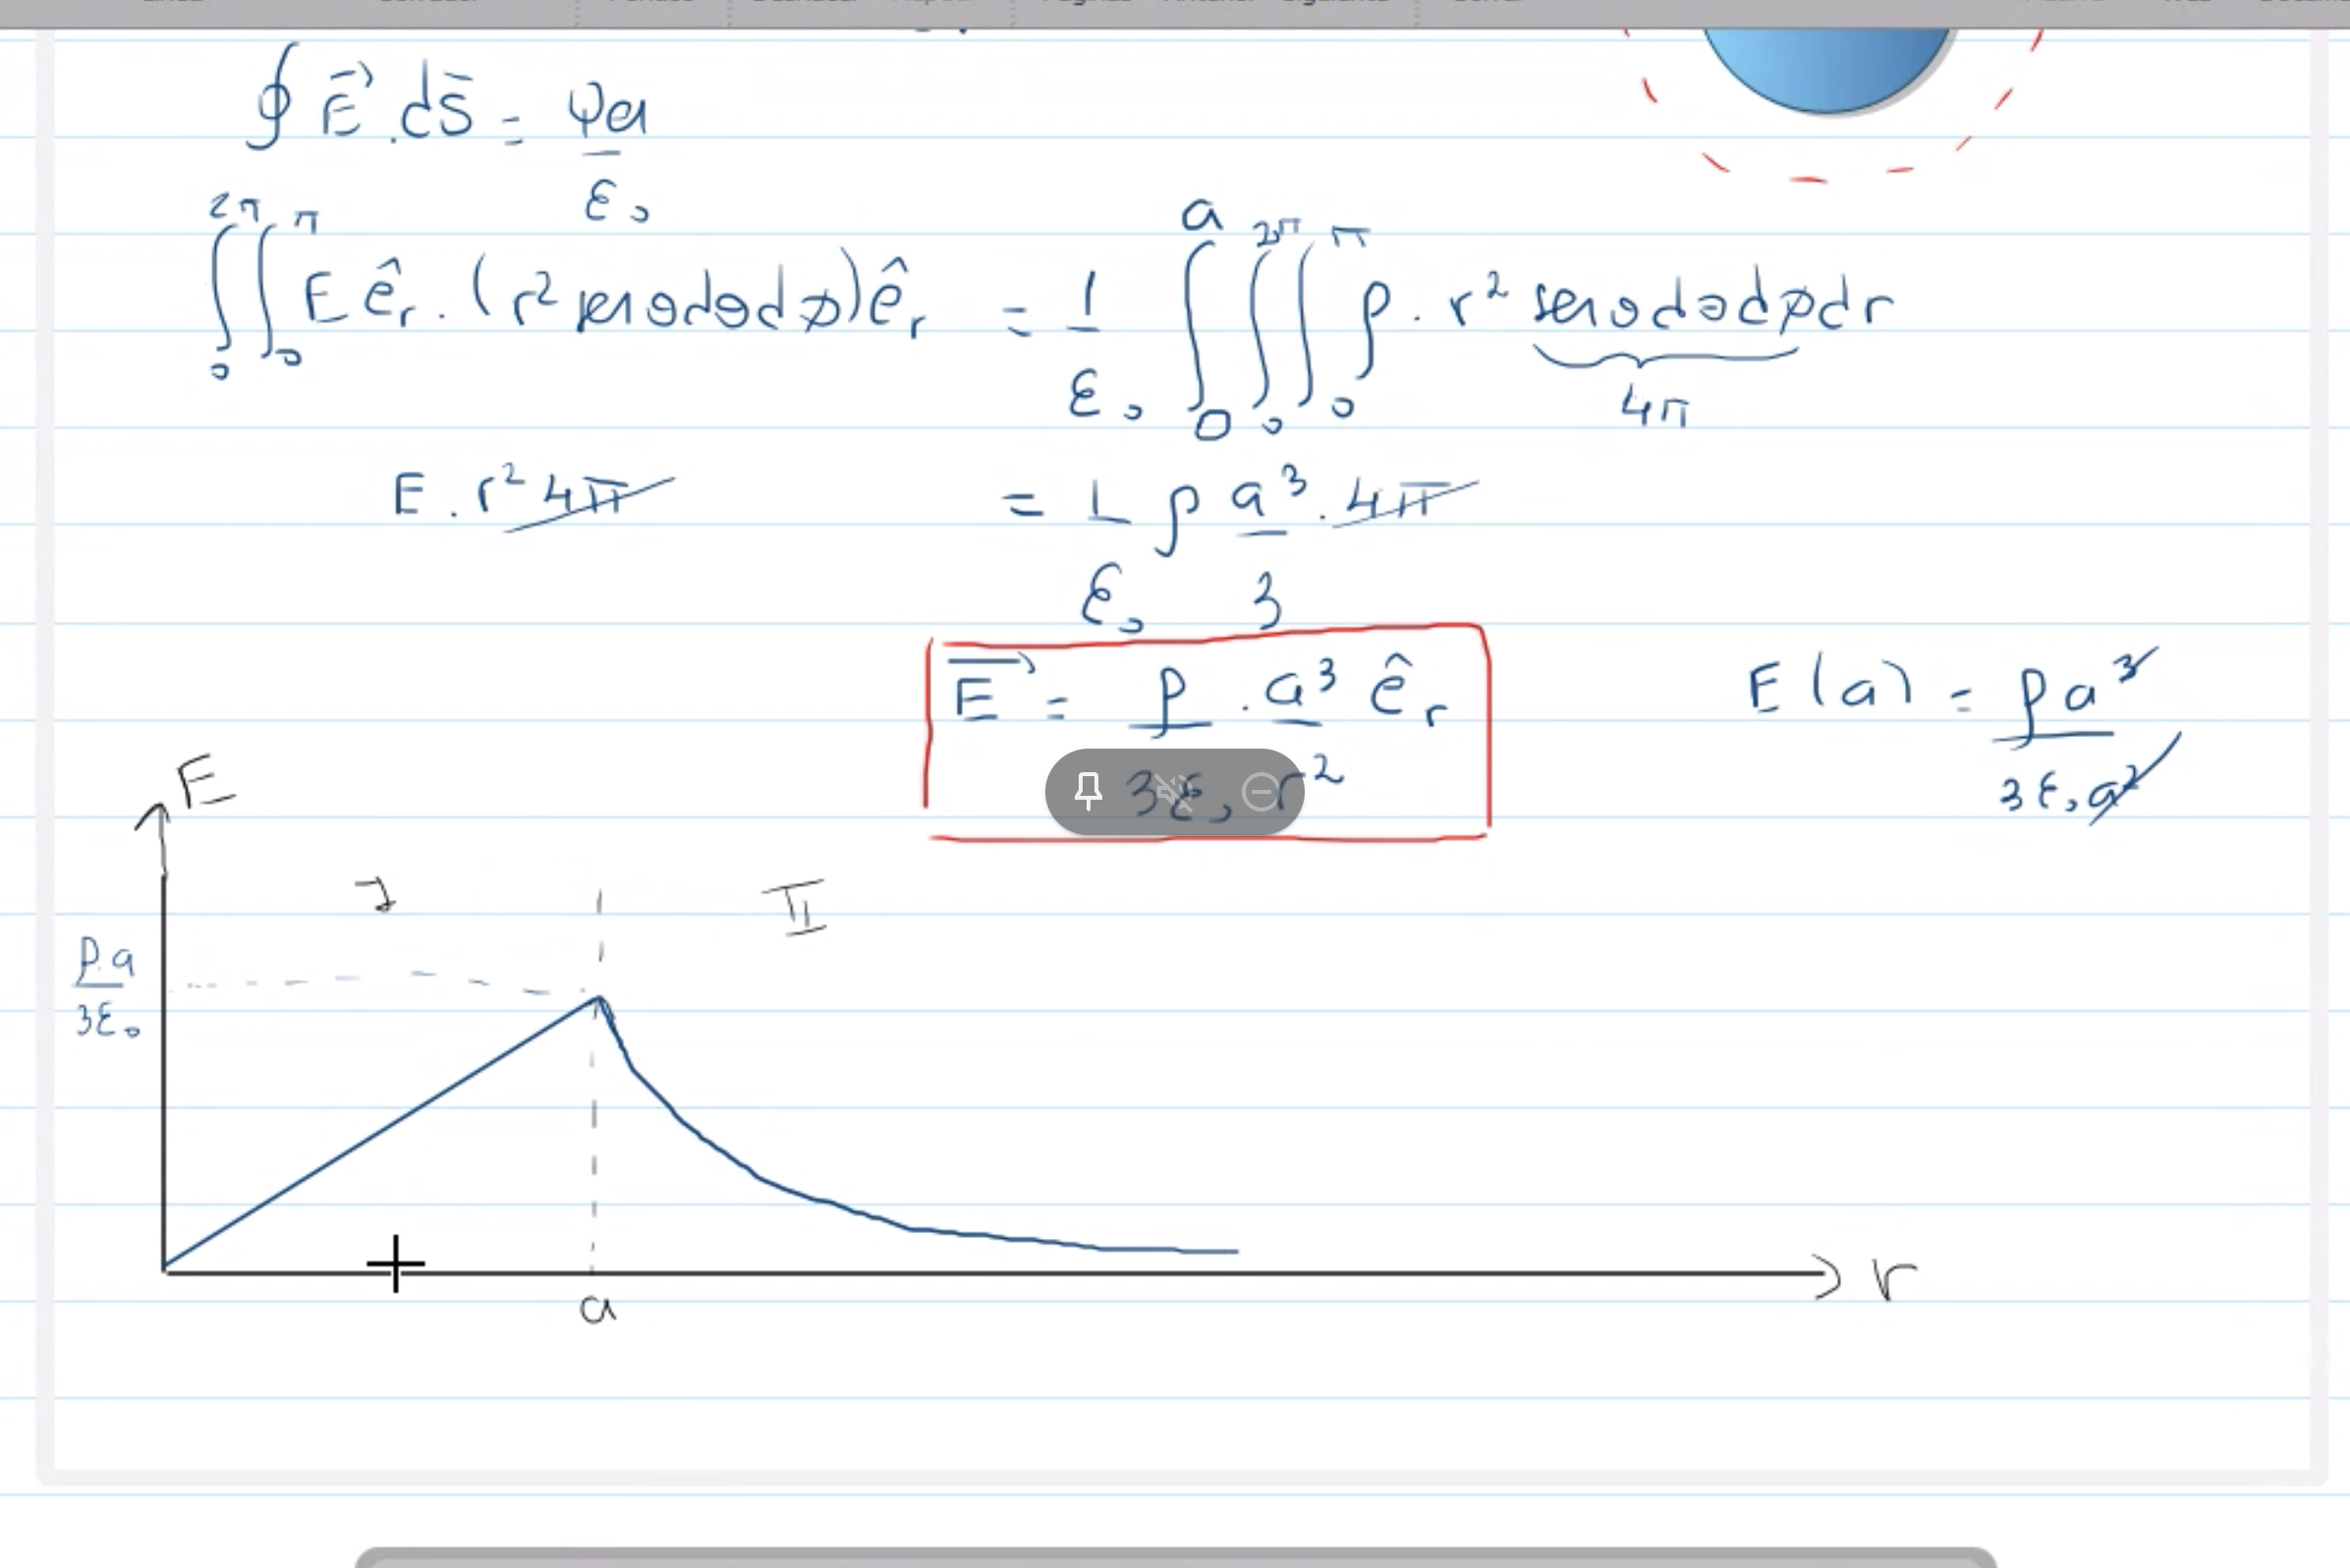 ∮ E⃗ . ds̄ = φen / ε₀
∫₀^2π ∫₀^π E ê_r . (r² senθdθdφ) ê_r = 1/ε₀ ∫₀^a ∫₀^2π ∫₀^π ρ . r² senθdθdφdr
4π
E . r² 4π = 1/ε₀ ρ a³/3 . 4π
E⃗ = ρ/3ε₀ . a³/r² ê_r
E(a) = ρa³/3ε₀a²
E
I
II
ρ.a/3ε₀
a
r